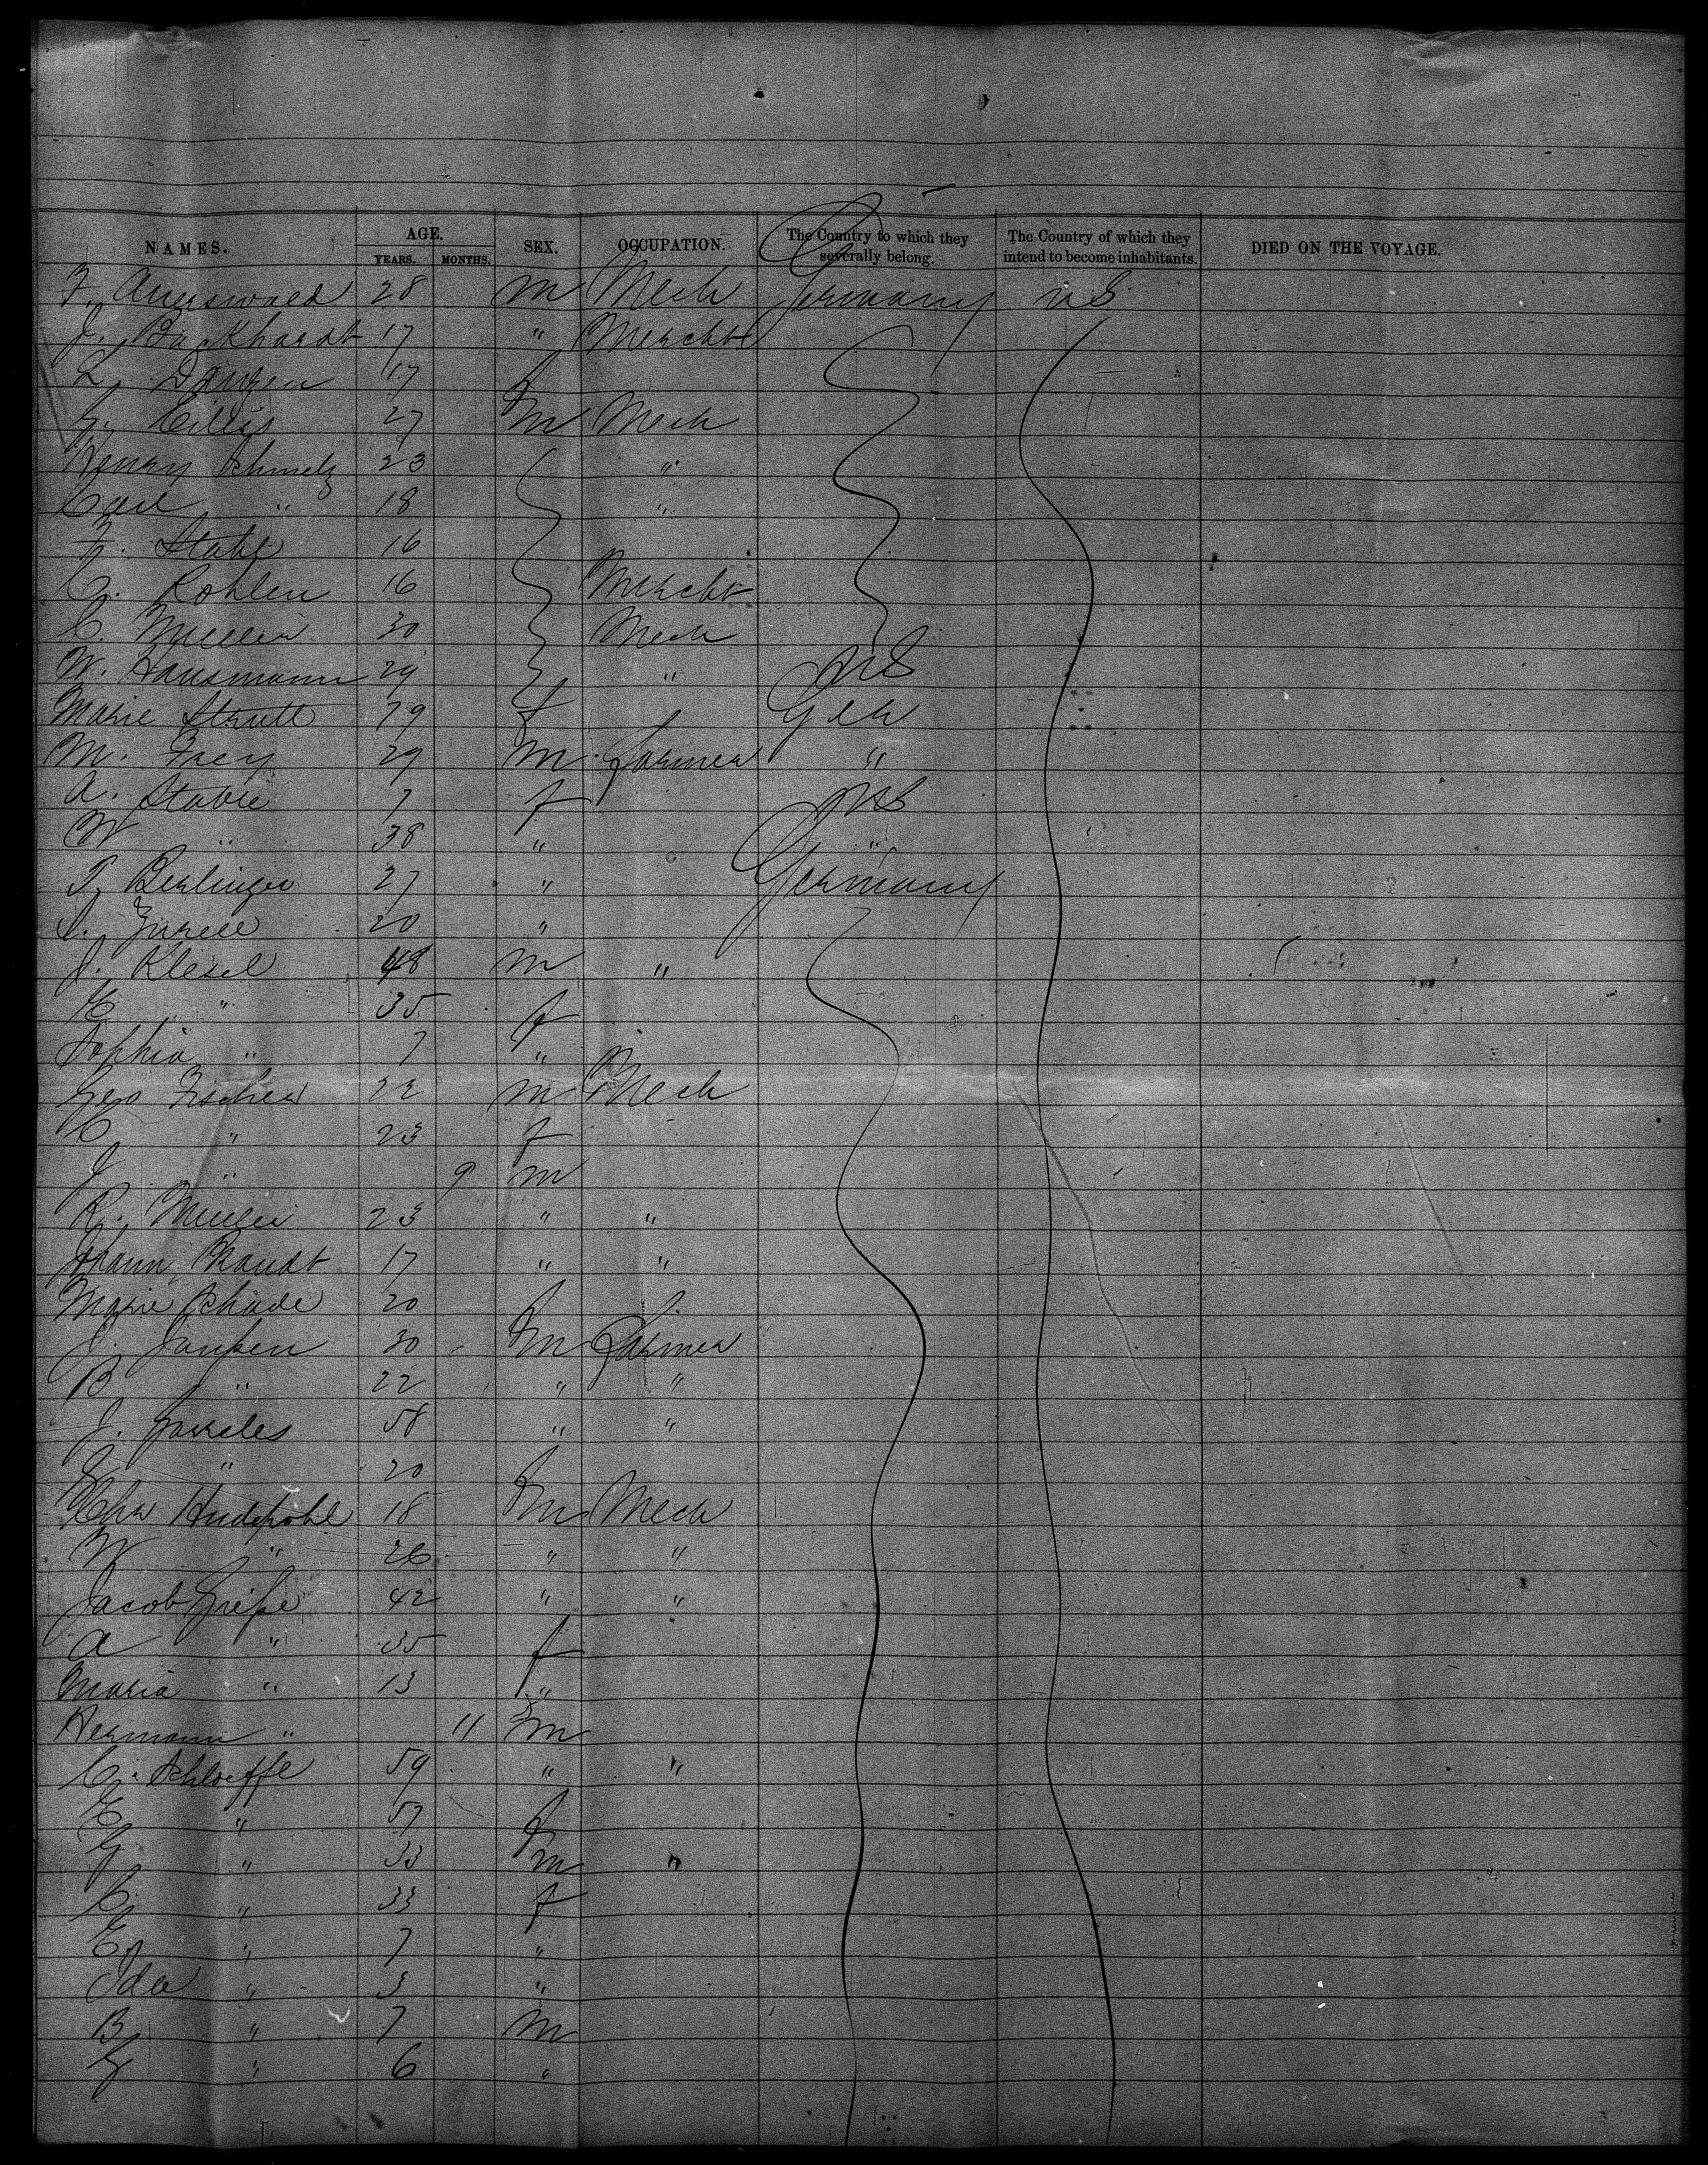 NAMES. AGE. YEARS. MONTHS. SEX. OCCUPATION. The Country to which they severally belong. The Country of which they intend to become inhabitants. DIED ON THE VOYAGE.
F. Auerswald 28 m Mech Germany U S
J. Burkhardt 17 " Mercht
L. 17 f
G. 27 m Mech
Henry Schmelz 23 "
Carl " 18 "
F. Stahl 16
C. Rohlen 16 Mercht
C. Mueller 30 Mech
W. Hausmann 29 " U S
Marie Strutt 79 f Ger
M. Frey 29 m Farmer "
A. Stable 7 f U S
W " 38 " "
P. Berlinger 27 " Germany
20 "
J. Klesel 48 m "
E " 35 f
Sophia " 7 "
Geo Fischer 22 m Mech
C " 23 f
J " 9 m
R. Muller 23 " "
Johann Brandt 17 " "
Marie Schade 20 f
J. Janssen 30 m Farmer
B " 22 " "
J. 58 " "
" 20 f
Chr Hudepohl 18 m Mech
W " 26 " "
Jacob 42 " "
A " 35 f
Maria " 13 "
Hermann " 11 m
C. Schloeffe 59 " "
E " 57 f
G " 33 m "
C. " 33 f
E " 7 "
Ida " 3 "
B " 7 m
G " 6 "